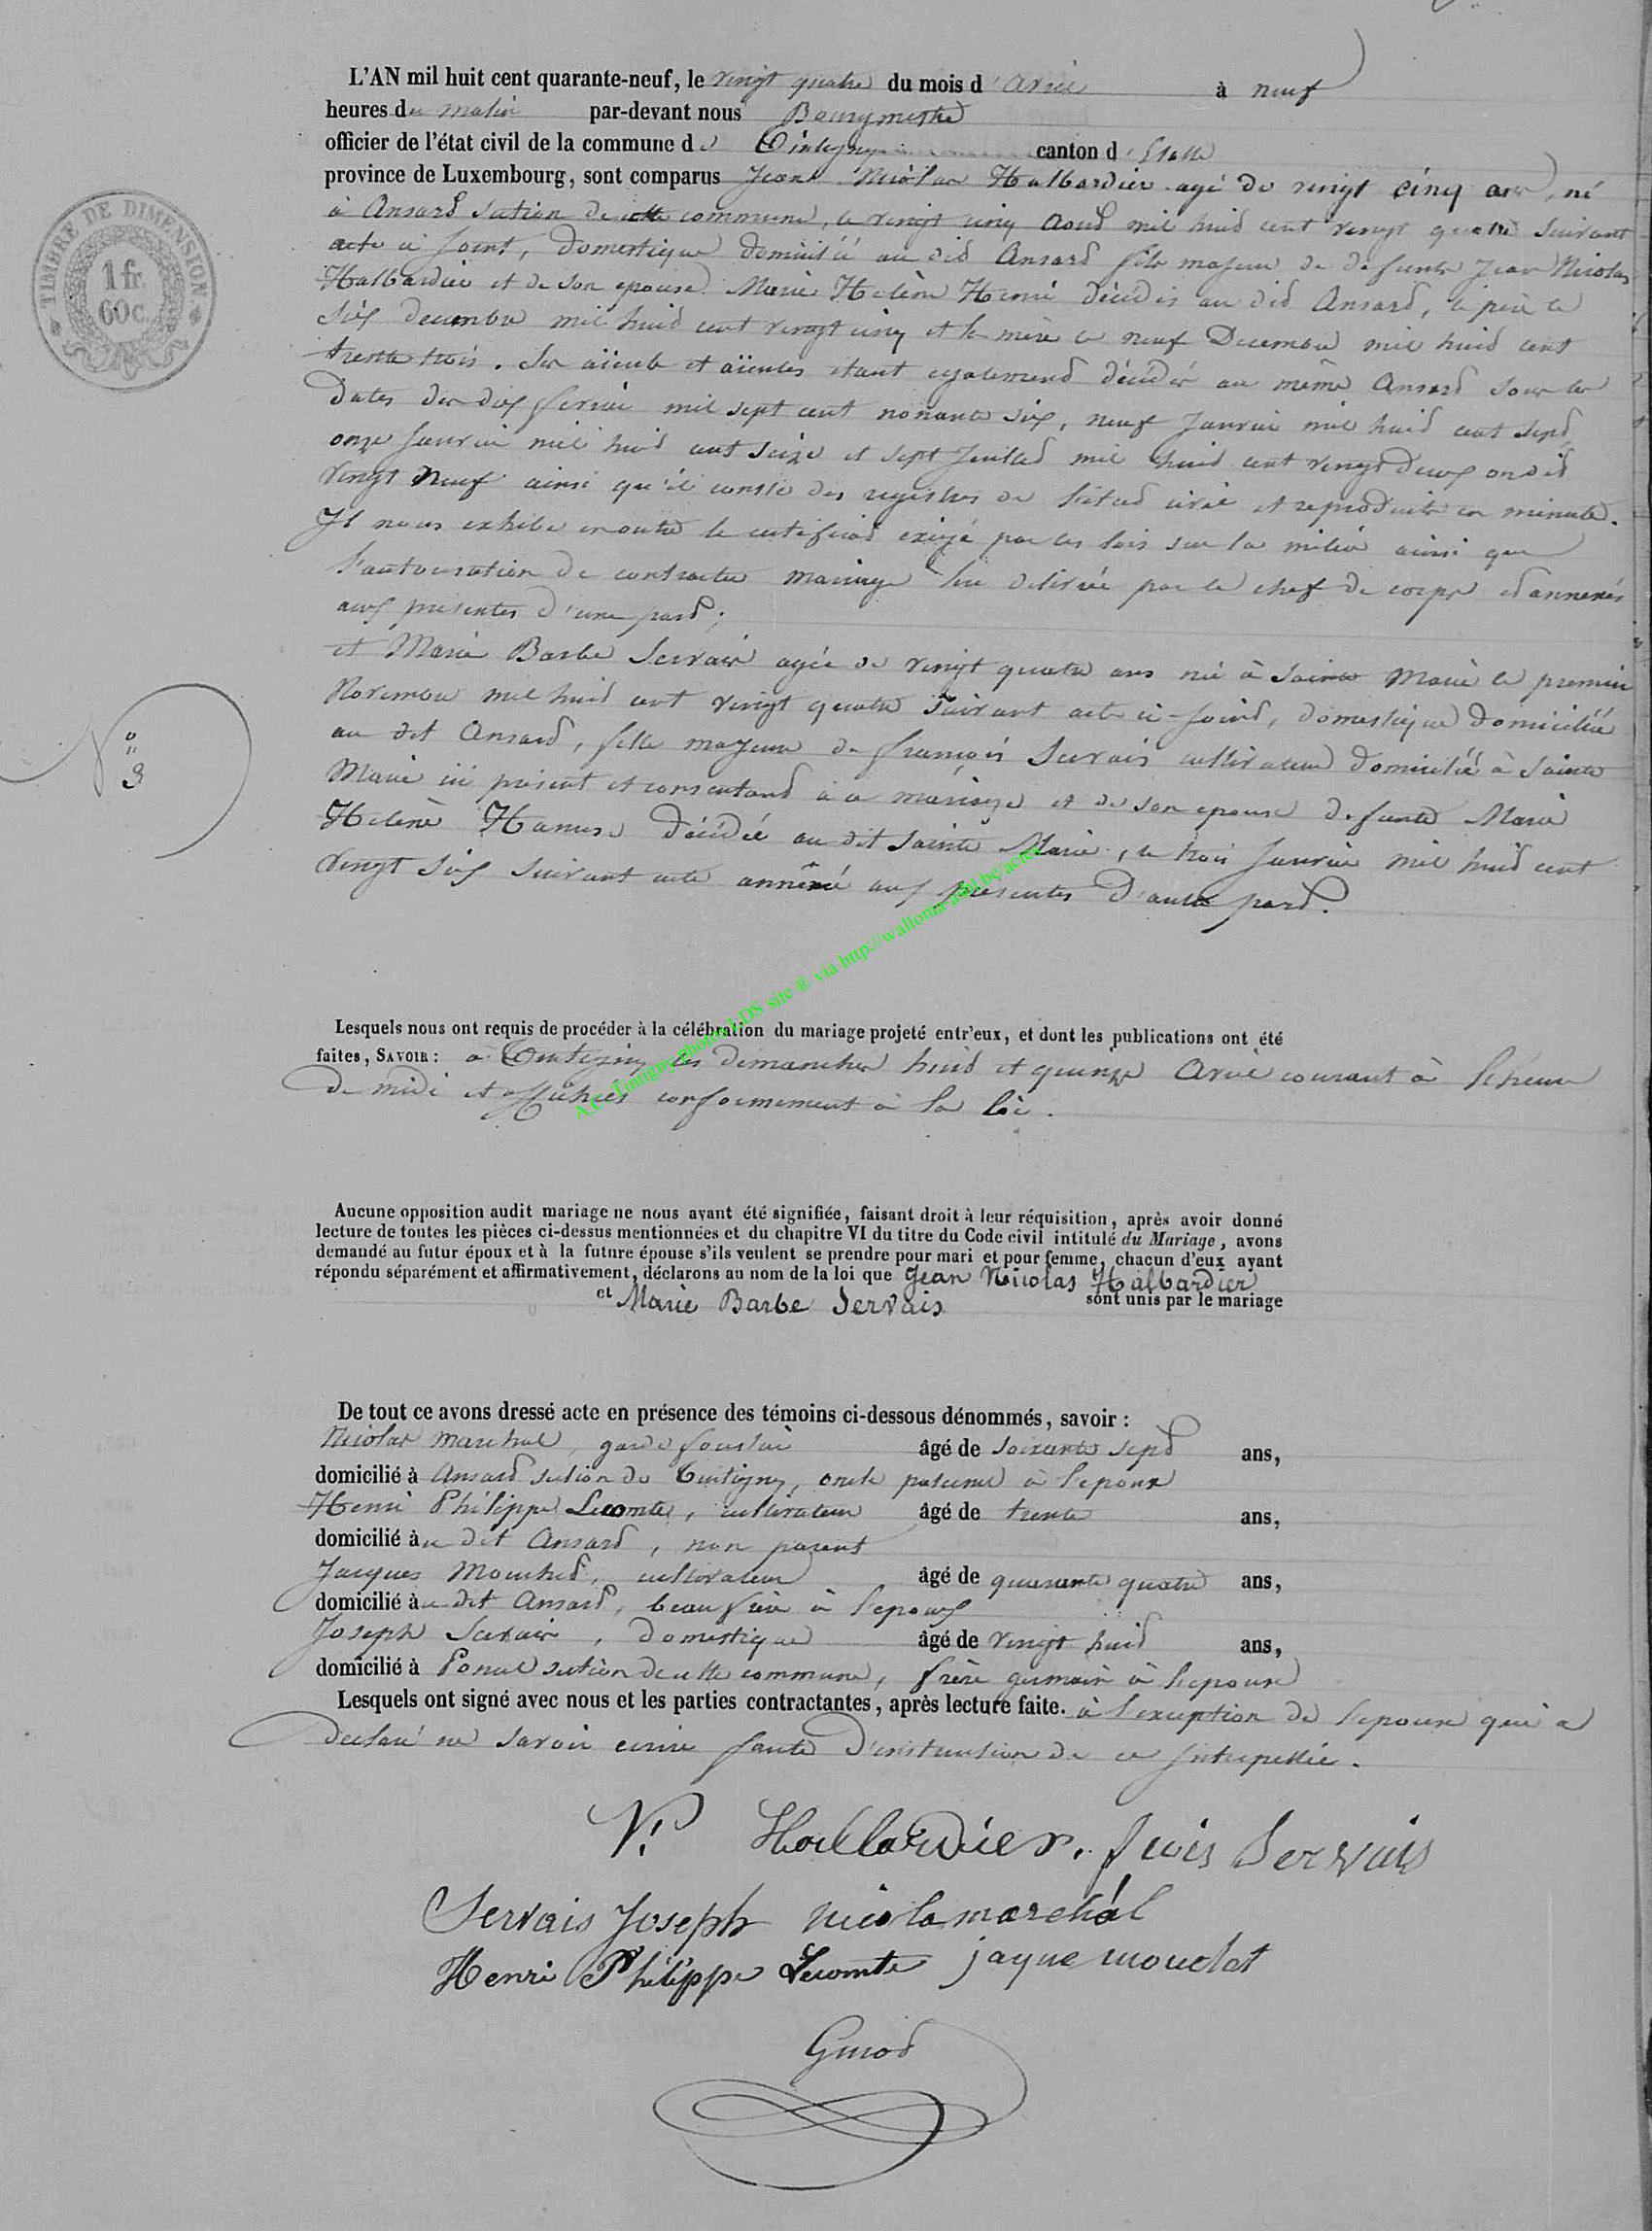 L'AN mil huit cent quarante-neuf, le vingt quatre du mois d'avril à neuf
heures du matin par-devant nous Bourgmestre
officier de l'état civil de la commune de Tintigny canton d'Etalle
province de Luxembourg, sont comparus Jean Nicolas Halbardier agé de vingt cinq ans, né
à Ansard section de cette commune, le vingt cinq Aoud mil huid cent vingt quatre suivant
acte ci joint, domestique domicilié au did Ansard fils majeur de defunts Jean Nicolas
Halbardier et de son epouse Marie Hélène Henri décédés au did Ansard, le père le
six decembre mil huid cent vingt cinq et la mère le neuf Decembre mil huid cent
trente trois. Ses aïeuls et aïeules étant egalemend décédés au même Ansard sous les
dates des dix fevrier mil sept cent nonante six, neuf Janvier mil huid cent sept
onze Janvier mil huid cent seize et sept Juilled mil huid cent vingt deux ondit
vingt neuf ainsi qu'il conste des registres de l'état civil et reproduits en minute.
Il nous exhibe en outre le certificat exigé par les lois sur la milice ainsi que
l'autorisation de contracter mariage lui delivrée par le chef de corps et annexés
aux présentes d'une pard;
et Marie Barbe Servais agée de vingt quatre ans née à Sainte Marie le premier
Novembre mil huid cent vingt quatre suivant acte ci-joind, domestique domiciliée
au dit Ansard, fille majeure de françois Servais cultivateur domicilié à Sainte
Marie ici présent et consentand à ce mariage et de son epouse defunte Marie
Helène Hanus décédée au dit Sainte Marie, le trois Janvier mil huid cent
vingt six suivant acte annéxé aux présentes d'autre pard.
N° 3
TIMBRE DE DIMENSION
1 fr.
60 c.
A.C. Tintigny photos LDS site ® via http://wallonia-asbl.be/actes
Lesquels nous ont requis de procéder à la célébration du mariage projeté entr'eux, et dont les publications ont été
faites, SAVOIR: à Tintigny les dimanches huid et quinze Avril courant à l'heure
de midi et affichées conformement à la loi.
Aucune opposition audit mariage ne nous ayant été signifiée, faisant droit à leur réquisition, après avoir donné
lecture de toutes les pièces ci-dessus mentionnées et du chapitre VI du titre du Code civil intitulé du Mariage, avons
demandé au futur époux et à la future épouse s'ils veulent se prendre pour mari et pour femme, chacun d'eux ayant
répondu séparément et affirmativement, déclarons au nom de la loi que Jean Nicolas Halbardier
et Marie Barbe Servais sont unis par le mariage
De tout ce avons dressé acte en présence des témoins ci-dessous dénommés, savoir:
Nicolas Marechal, garde forestier âgé de soixante sept ans,
domicilié à Ansard section de Tintigny, oncle paternel à l'epoux
Henri Philippe Lecomte, cultivateur âgé de trente ans,
domicilié au dit Ansard, non parent
Jacques Mouchet, cultivateur âgé de quarante quatre ans,
domicilié au dit Ansard, beau frère à l'epoux
Joseph Servais, domestique âgé de vingt huid ans,
domicilié à Poncel section de cette commune, frère germain à l'epouse
Lesquels ont signé avec nous et les parties contractantes, après lecture faite. à l'exception de l'epouse qui a
declaré ne savoir ecrire faute d'instruction de ce Interpellée.
N. Hallardier. fcois Servais
Servais Joseph nicola marchál
Henri Philippe Lecomte jaque mouchet